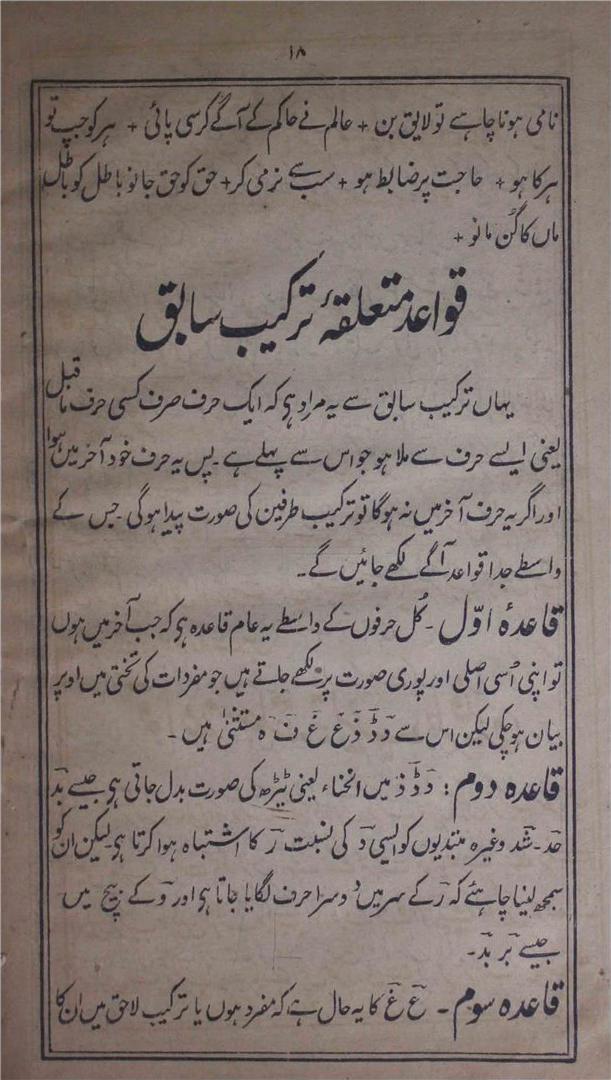 ۱۸
نامی ہونا چاہے تو لایق بن + عالم نے حاکم کے آگے کرسی پائی + ہر کو جپ تو
ہر کا ہو + حاجت پر ضابط ہو + سب سے نرمی کر + حق کو حق جانو باطل کو باطل
ماں کا گُن مانو +
قواعد متعلقۂ ترکیب سابق
یہاں ترکیب سابق سے یہ مراد ہی کہ ایک حرف صرف کسی حرف ماقبل
یعنی ایسے حرف سے ملا ہو جو اس سے پہلے ہے ۔ پس یہ حرف خود آخر میں ہوا
اور اگر یہ حرف آخر میں نہ ہوگا تو ترکیب طرفین کی صورت پیدا ہوگی ۔ جس کے
واسطے جدا قواعد آگے لکھے جائیں گے ۔
قاعدۂ اوّل ۔ کُل حرفوں کے واسطے یہ عام قاعدہ ہی کہ جب آخر میں ہوں
تو اپنی اُسی اصلی اور پوری صورت پر لکھے جاتے ہیں جو مفردات کی تختی میں اوپر
بیان ہو چکی لیکن اس سے دَ ڈَ ذَ عَ غَ نَ ہ مستثنیٰ ہیں ۔
قاعدہ دوم : دَ ڈَ ذَ میں انحناء یعنی ٹیڑھ کی صورت بدل جاتی ہی جیسے بد
حد ۔ شد وغیرہ مبتدیوں کو ایسی دَ کی نسبت رَ کا اشتباہ ہوا کرتا ہی لیکن ان کو
سمجھ لینا چاہئے کہ رَ کے سر میں دوسرا حرف لگایا جاتا ہی اور دَ کے بیچ میں
جیسے بر بد ۔
قاعدہ سوم ۔ عَ غَ کا یہ حال ہے کہ مفرد ہوں یا ترکیب لاحق میں ان کا